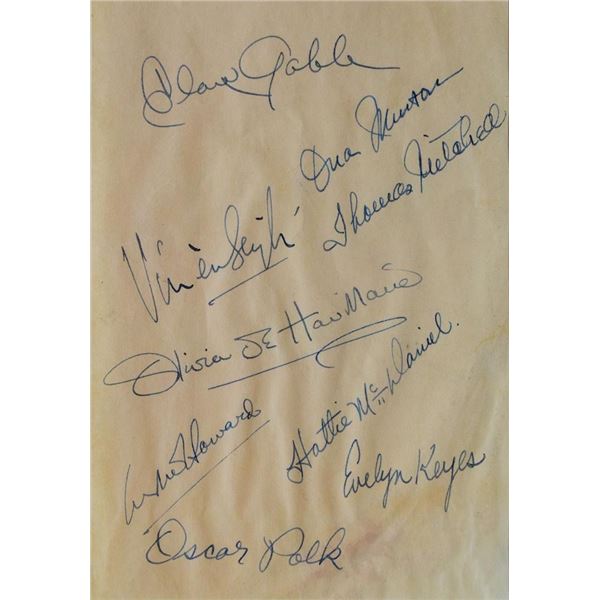 Clark Gable
Ona Munson
Thomas Mitchell
Vivien Leigh
Olivia De Havilland
Leslie Howard
Hattie McDaniel.
Evelyn Keyes
Oscar Polk